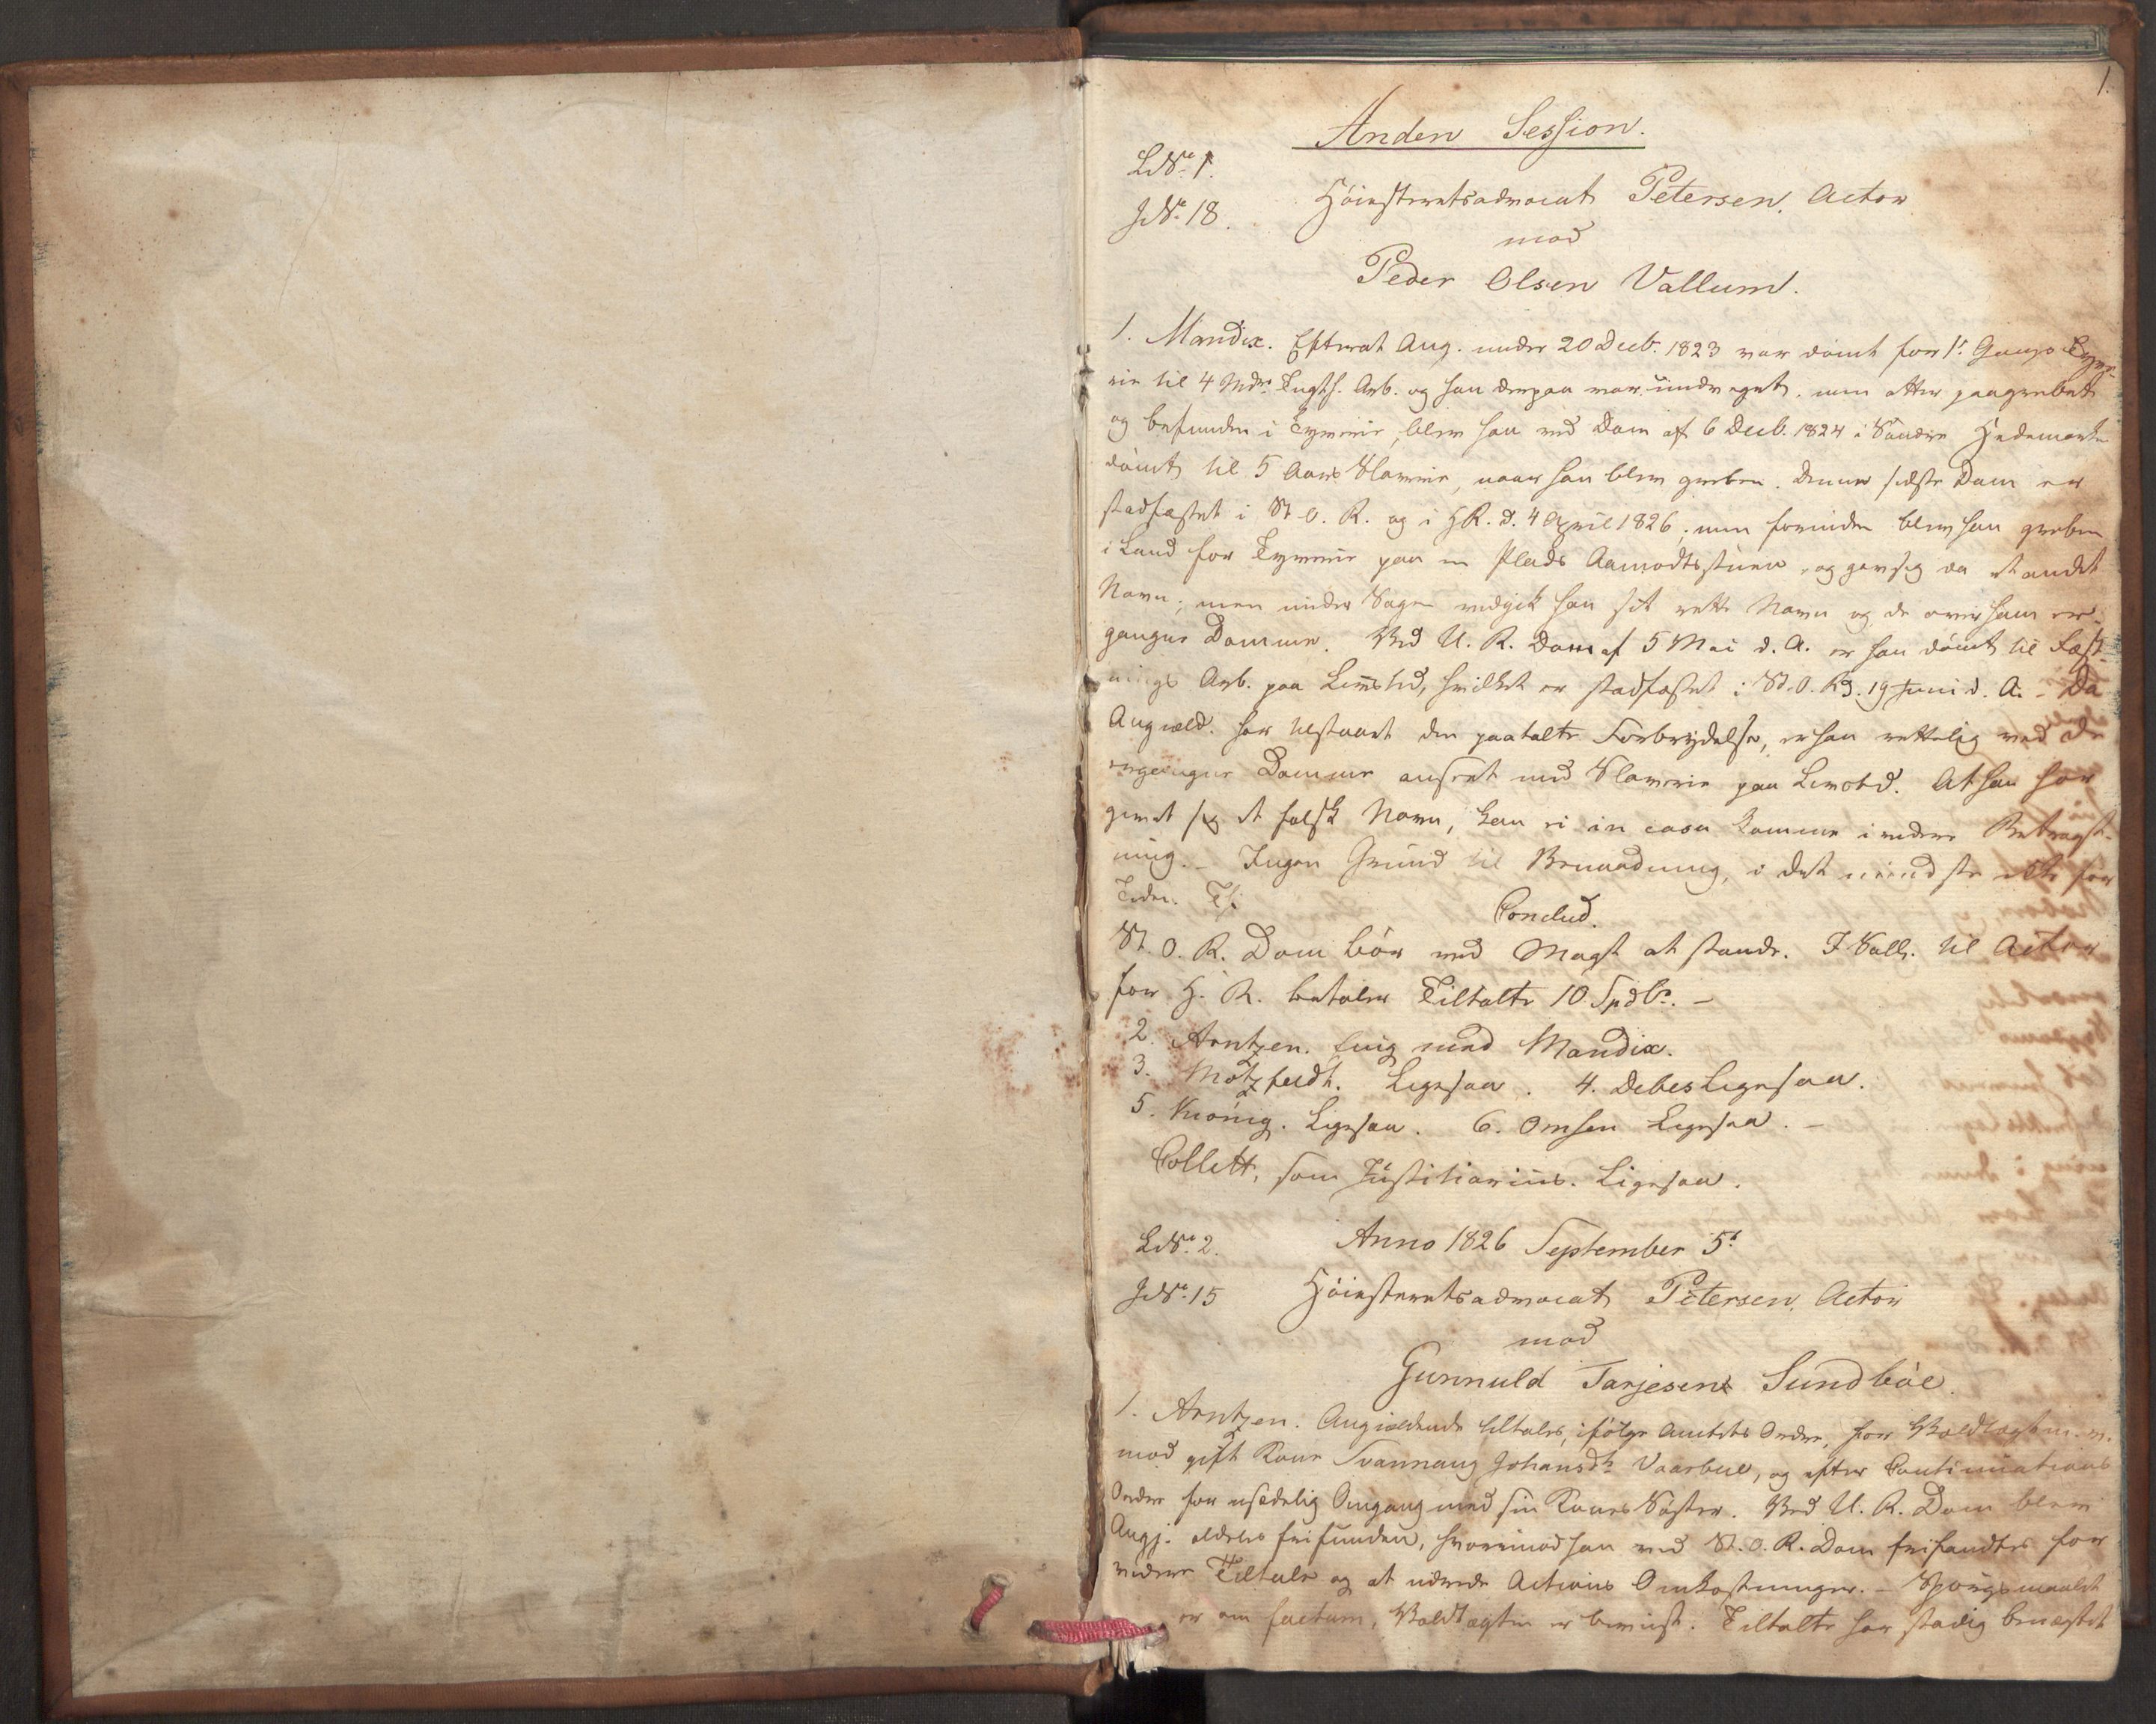 1.
Anden Session.
L. No. 1.
J. No. 18. Höiesteretsadvocat Petersen, Actor
mod
Peder Olsen Vallum.
1. Mandix. Efterat Ang. under 20 Decb. 1823 var dömt for 1ste Gangs Tyve-
rie til 4 Mdrs. Tugth. Arb. og han derpaa var undveget, men atter paagrebet
og befunden i Tyverie, blev han ved Dom af 6 Decb. 1824 i Söndre Hedemarken
dömt til 5 Aars Slaverie, naar han blev greben. Denne sidste Dom er
stadfæstet i St. O. R. og i H R. d. 4 April 1826; men forinden blev han greben
i Land for Tyverie paa en Plads Aamodtsstuen, og gav sig da et andet
Navn; men under Sagen vedgik han sit rette Navn og de over ham er-
gangne Domme. Ved U. R. Dom af 5 Mai d. A. er han dömt til Fæst-
nings Arb. paa Livstid, hvilket er stadfæstet i St. O. R. d. 19 Juni d. A. - Da
Angjæld. har tilstaaet den paatalte Forbrydelse, er han rettelig ved de
ergangne Domme anseet med Slaverie paa Livstid. At han har
givet sig et falsk Navn, kan ei in casu komme i videre Betragt-
ning. - Ingen Grund til Benaadning, i det mindste ikke for
Tiden. Thi
Conclud.
St. O. R. Dom bör ved Magt at stande. I Sallr. til Actor
for H. R. betaler Tiltalte 10 Spdlr. -
2. Arntzen. Enig med Mandix.
3. Motzfeldt. Ligesaa. 4. Debes Ligesaa.
5. Krönig. Ligesaa. 6. Omsen Ligesaa. -
Collett, som Justitiarius. Ligesaa.
L. No. 2. Anno 1826 September 5t.
J. No. 15 Höiesteretsadvocat Petersen, Actor
mod
Gunnuld Tarjesen Sundböe.
1. Arntzen. Angjeldende tiltales, ifölge Amtets Ordre, for Voldtægt m. v.
mod gift Kone Svannaug Johansdtr. Vaarbue, og efter Continuations
Ordre for usædelig Omgang med sin Kones Söster. Ved U. R. Dom blev
Angj. aldeles frifunden, hvorimod han ved St. O. R. Dom frifandtes for
videre Tiltale og at udrede Actions Omkostninger. - Spörgsmaalet
er om factum, Voldtægten er beviist. Tiltalte har stadig benægtet